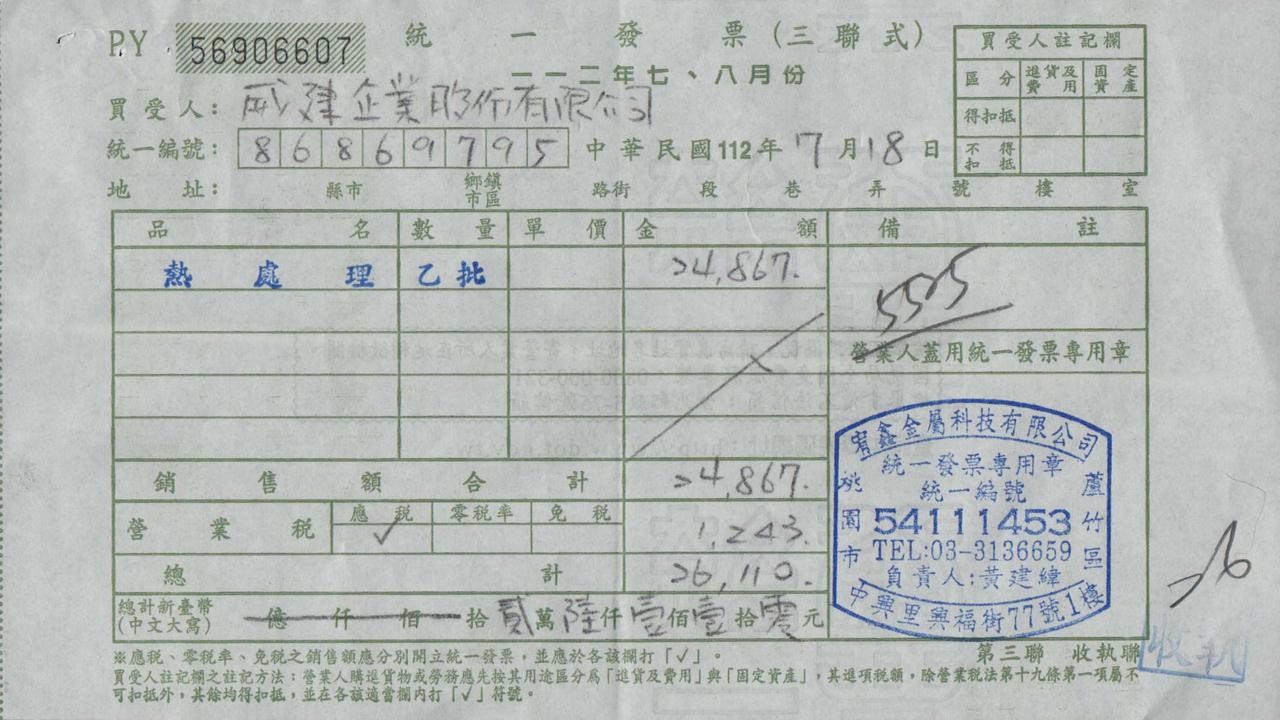 PY 56906607 統一發票(三聯式)
一一二年七、八月份
買受人註記欄
區分 進貨及費用 固定資產
得扣抵
不得扣抵
買受人: 威建企業股份有限公司
統一編號: 86869795 中華民國112年7月18日
地址: 縣市 鄉鎮市區 路街 段 巷 弄 號 樓 室
品名 數量 單價 金額 備註
熱處理 乙批 24,867.
5515
營業人蓋用統一發票專用章
銷售額合計 24,867.
營業稅 應稅 零稅率 免稅
✓ 1,243.
總計 26,110.
總計新臺幣(中文大寫) 億仟佰拾貳萬陸仟壹佰壹拾零元
甯鑫金屬科技有限公司
統一發票專用章
統一編號
54111453
TEL:03-3136659
負責人:黃建緯
桃園市蘆竹區
中興里興福街77號1樓
26
※應稅、零稅率、免稅之銷售額應分別開立統一發票,並應於各該欄打「✓」。
第三聯 收執聯
收執
買受人註記欄之註記方法:營業人購進貨物或勞務應先按其用途區分為「進貨及費用」與「固定資產」,其進項稅額,除營業稅法第十九條第一項屬不
可扣抵外,其餘均得扣抵,並在各該適當欄內打「✓」符號。